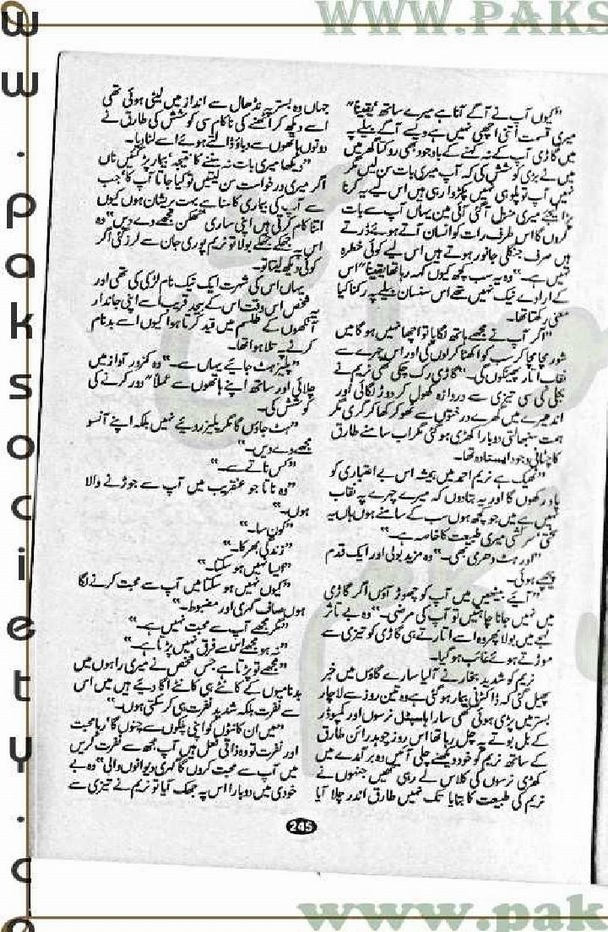 WWW.PAKS
w
w
.
p
a
k
s
o
c
i
e
t
y
.
c
o
"کیوں آپ نے آگے آنا ہے میرے ساتھ یقیناً"
میری قسمت اتنی اچھی نہیں ہے ویسے آگے بیلے پہ
میں گاڑی آپ کے نہ کہنے کے باوجود بھی روکتا تھا
میں نے بڑی کوشش کی کہ آپ میری بات سن لیں مگر
نہیں آپ تو پلو ہی نہیں پکڑوا رہی ہیں اس لیے یہ کرنا
کروں گا اس طرف رات کو انسان آتے ہوئے ڈرتے
ہیں صرف جنگلی جانور ہوتے ہیں اس لیے کوئی خطرہ
نہیں ہے۔" وہ یہ سب کچھ کیوں کہہ رہا تھا یقیناً "اس
کے ارادے نیک نہیں تھے اس سنسان بیلے پہ رکنا کیا
معنی رکھتا تھا۔
"اگر آپ نے مجھے ہاتھ لگایا تو اچھا نہیں ہوگا میں
شور مچا مچا کر سب کو اکٹھا کر لوں گی اور اس چہرے سے
نقاب اتار پھینکوں گی۔" گاڑی رک چکی تھی نریم نے
بجلی کی سی تیزی سے دروازہ کھول کر دوڑ لگائی اور
اندھیرے میں گھرے درختوں سے ٹھوکر کھا کر گری مگر
ہمت سنبھالتی دوبارا کھڑی ہو گئی مگر اب سامنے طارق
کا چٹانی وجود ایستادہ تھا۔
"ٹھیک ہے نریم احمد میں ہمیشہ اس بے اعتباری کو
یاد رکھوں گا اور یہ بتا دوں کہ میرے چہرے پہ نقاب
نہیں ہے میں جو کچھ ہوں سب کے سامنے ہوں ہاں یہ
سختی سرکشی میری طبیعت کا خاصہ ہے۔"
"اور ہٹ دھرمی بھی۔" وہ مزید بولی اور ایک قدم
پیچھے ہوئی۔
"آئیے بیٹھیں میں آپ کو چھوڑ آؤں اگر گاڑی
میں نہیں جانا چاہتیں تو آپ کی مرضی۔" وہ بے تاثر
لہجے میں بولا پھر وہ اسے اتارتے ہی گاڑی کو تیزی سے
موڑتے ہوئے غائب ہو گیا۔
نریم کو شدید بخار نے آ لیا سارے گاؤں میں خبر
پھیل گئی کہ ڈاکٹرنی بیمار ہو گئی ہے وہ تین روز سے لاچار
بستر میں پڑی ہوئی تھی سارا ہاسپٹل نرسوں اور کمپوڈر
کے بل بوتے پہ چل رہا تھا اس روز چوہدرائن طارق
کے ساتھ نریم کو خود دیکھنے چلی آئیں وہ برآمدے میں
کھڑی نرسوں کی کلاس لے رہی تھیں جنہوں نے
نریم کی طبیعت کا بتایا تک نہیں طارق اندر چلا آیا
جہاں وہ بستر پہ نڈھال سے انداز میں لیٹی ہوئی تھی
اسے دیکھ کر اٹھنے کی ناکام سی کوشش کی طارق نے
دونوں ہاتھوں سے دباؤ ڈالتے ہوئے اسے لٹا دیا۔
"دیکھا میری بات نہ سننے کا نتیجہ' بیمار پڑ گئیں ناں
اگر میری درخواست سن لیتیں تو کیا جاتا آپ کا' جب
سے آپ کی بیماری کا سنا ہے بہت پریشان ہوں کیوں
اتنا کام کرتی ہیں اپنی ساری تھکن مجھے دے دیں" وہ
اس پہ جھکے جھکے بولا تو نریم پوری جان سے لرز گئی اگر
کوئی دیکھ لیتا تو۔
یہاں اس کی شہرت ایک نیک نام لڑکی کی تھی اور
شخص اس وقت اس کے بیحد قریب اسے اپنی جاندار
آنکھوں کے طلسم میں قید کرتا ہوا کیوں اسے بدنام
کرنے پہ تلا ہوا تھا۔
"پلیز ہٹ جائیے یہاں سے۔" وہ کمزور آواز میں
چلائی اور ساتھ اپنے ہاتھوں سے عملاً" دور کرنے کی
کوشش کی۔
"ہٹ جاؤں گا مگر پلیز روئیے نہیں بلکہ اپنے آنسو
مجھے دے دیں۔"
"کس ناتے سے۔"
"وہ ناتا جو عنقریب میں آپ سے جوڑنے والا
ہوں۔"
"کون سا۔"
"زندگی بھر کا۔"
"ایسا نہیں ہو سکتا۔"
"کیوں نہیں ہو سکتا میں آپ سے محبت کرنے لگا
ہوں صاف گہری اور مضبوط۔"
"مگر مجھے آپ سے محبت نہیں ہے۔"
"نہ ہو مجھے اس سے فرق نہیں پڑتا ہے۔"
"مجھے تو پڑتا ہے جس شخص نے میری راہوں میں
بدنامیوں کے کانٹے ہی کانٹے اگا دیے ہیں میں اس
سے نفرت بلکہ شدید نفرت ہی کر سکتی ہوں۔"
"میں ان کانٹوں کو اپنی پلکوں سے چنوں گا' رہا محبت
اور نفرت تو وہ ذاتی فعل ہیں آپ مجھ سے نفرت کریں
میں آپ سے محبت کروں گا گہری دیوانوں والی" وہ بے
خودی میں دوبارا اس پہ جھک آیا تو نریم نے تیزی سے
245
www.pak